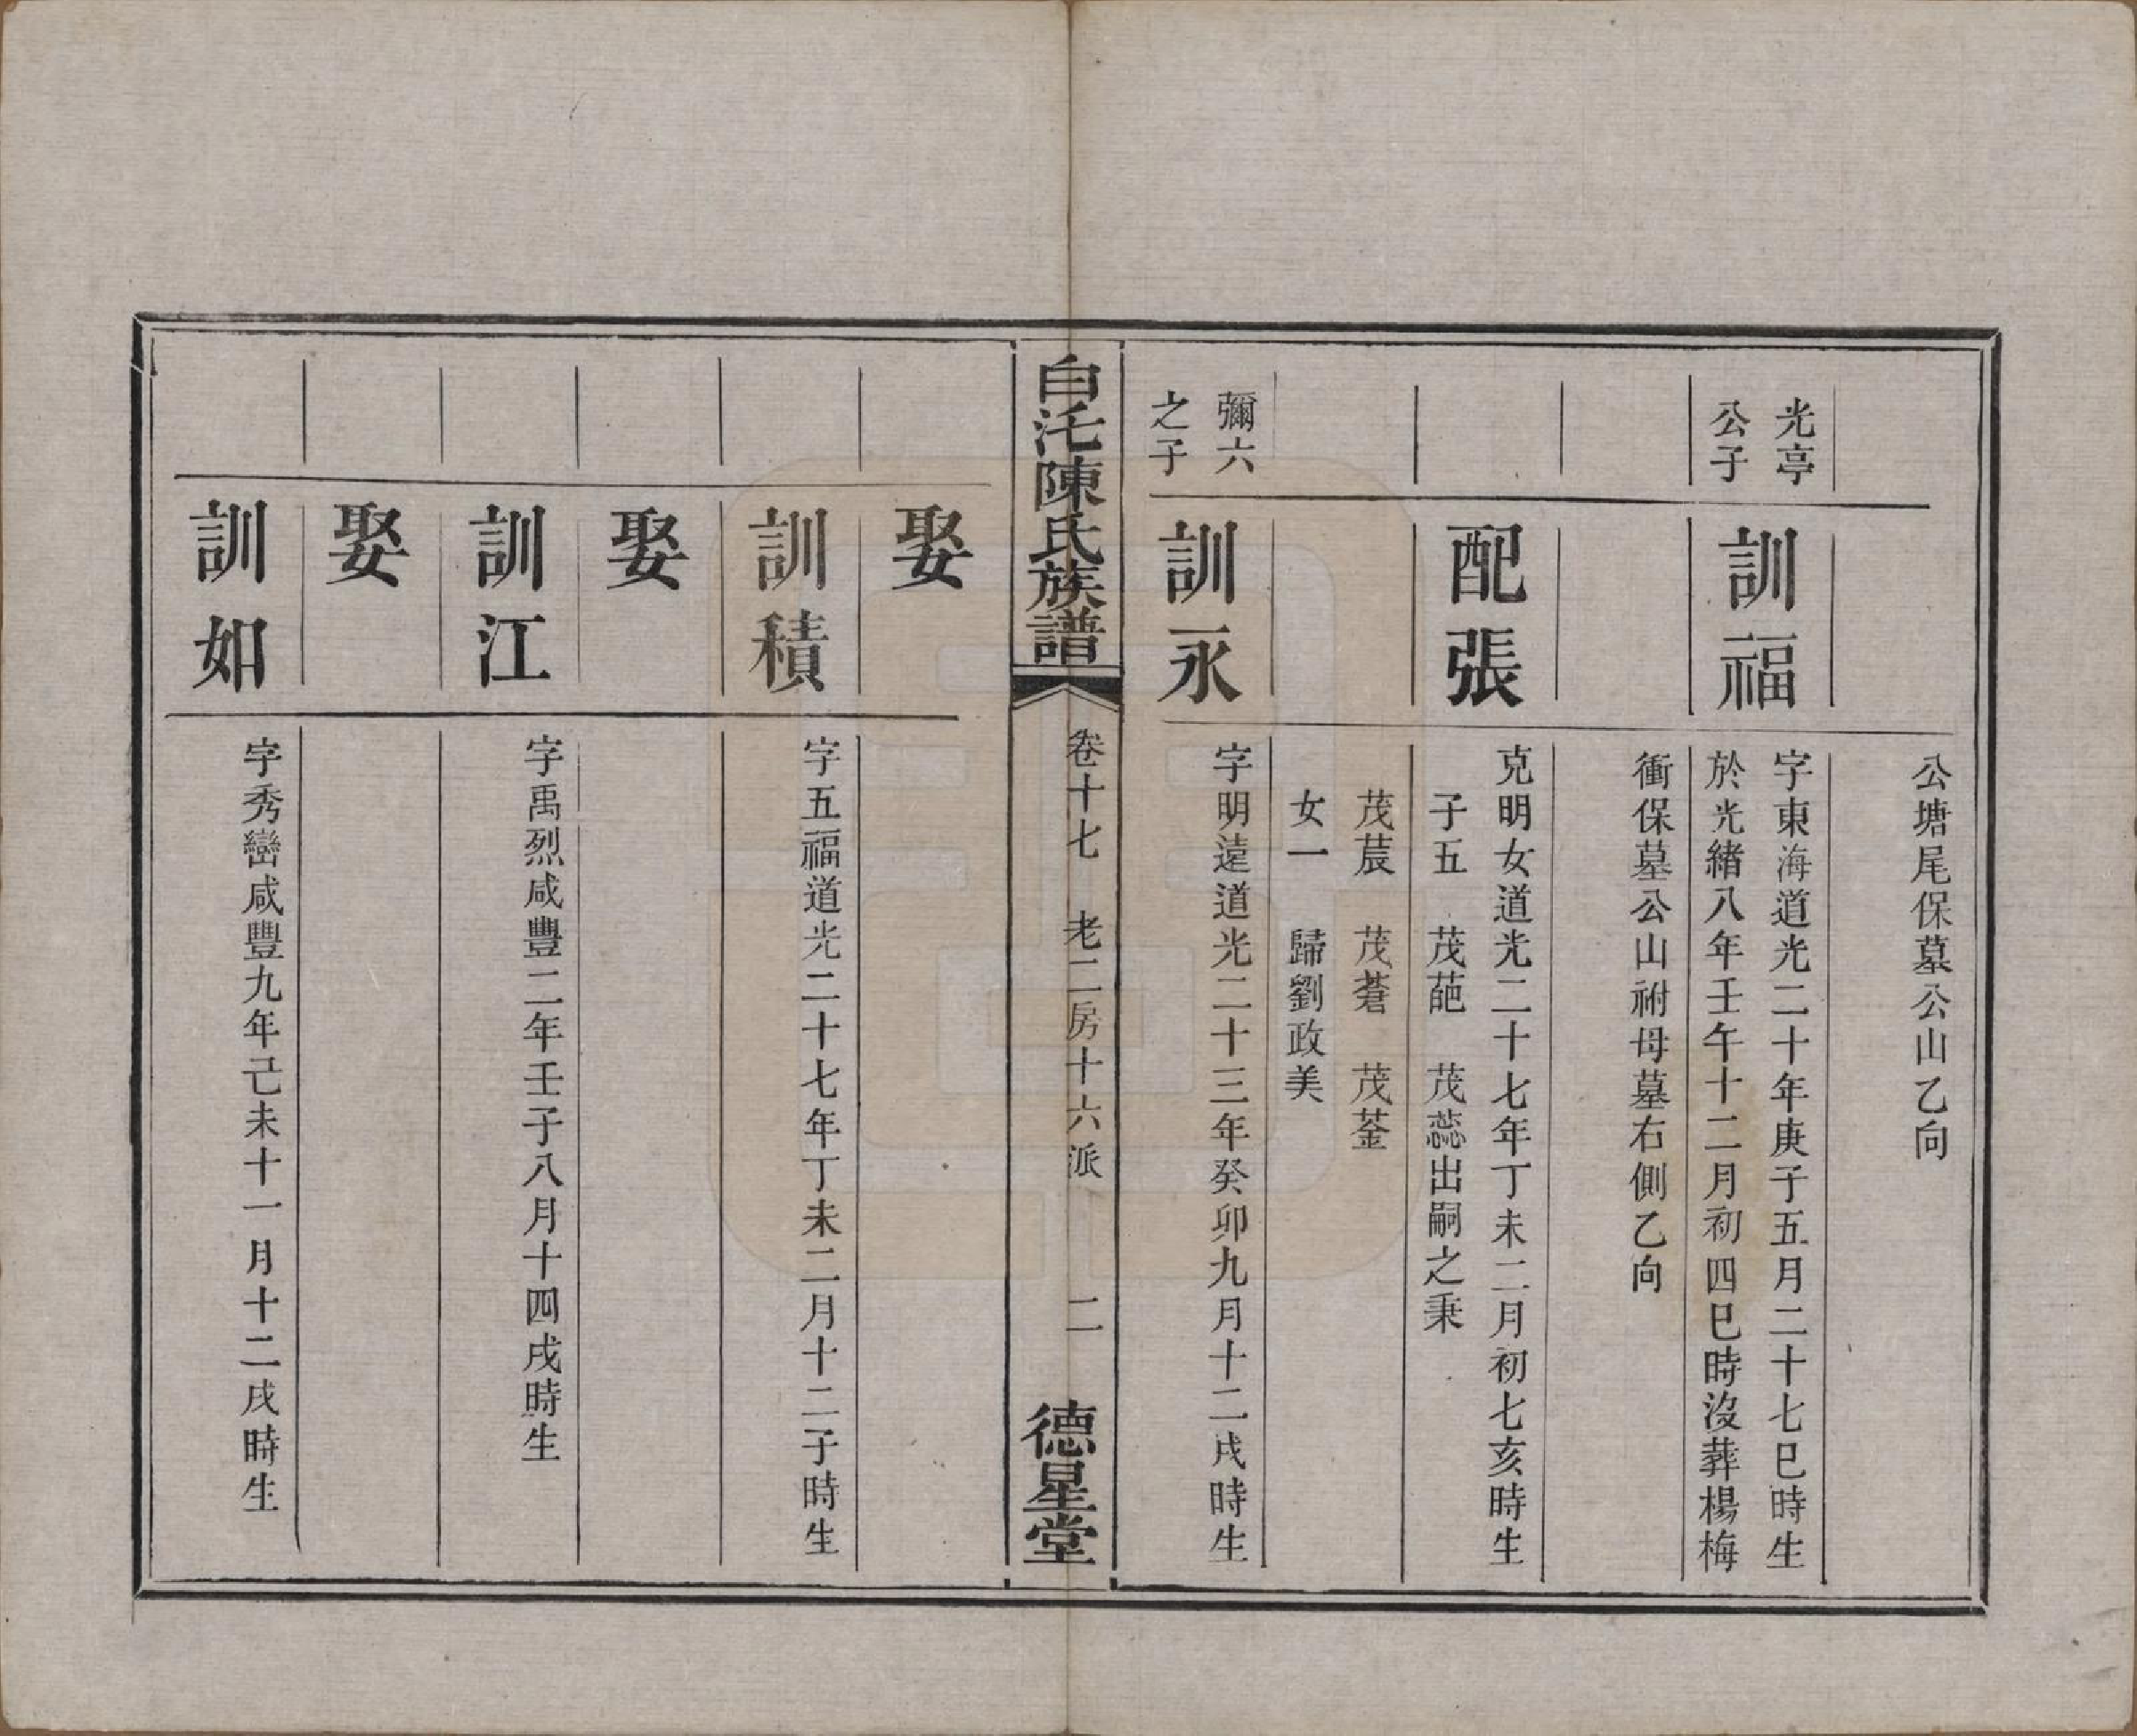 公塘尾保墓公山乙向
光亭
公子
訓福
字東海道光二十年庚子五月二十七巳時生
於光緒八年壬午十二月初四巳時沒葬楊梅
衝保墓公山祔母墓右側乙向
配張
克明女道光二十七年丁未二月初七亥時生
子五　茂葩　茂蕊出嗣之秉
茂莀　茂蒼　茂荃
女一　歸劉政美
彌六
之子
訓永
字明遠道光二十三年癸卯九月十二戌時生
白汑陳氏族譜
卷十七　老二房十六派　二
德星堂
娶
訓積
字五福道光二十七年丁未二月十二子時生
娶
訓江
字禹烈咸豐二年壬子八月十四戌時生
娶
訓如
字秀巒咸豐九年己未十一月十二戌時生